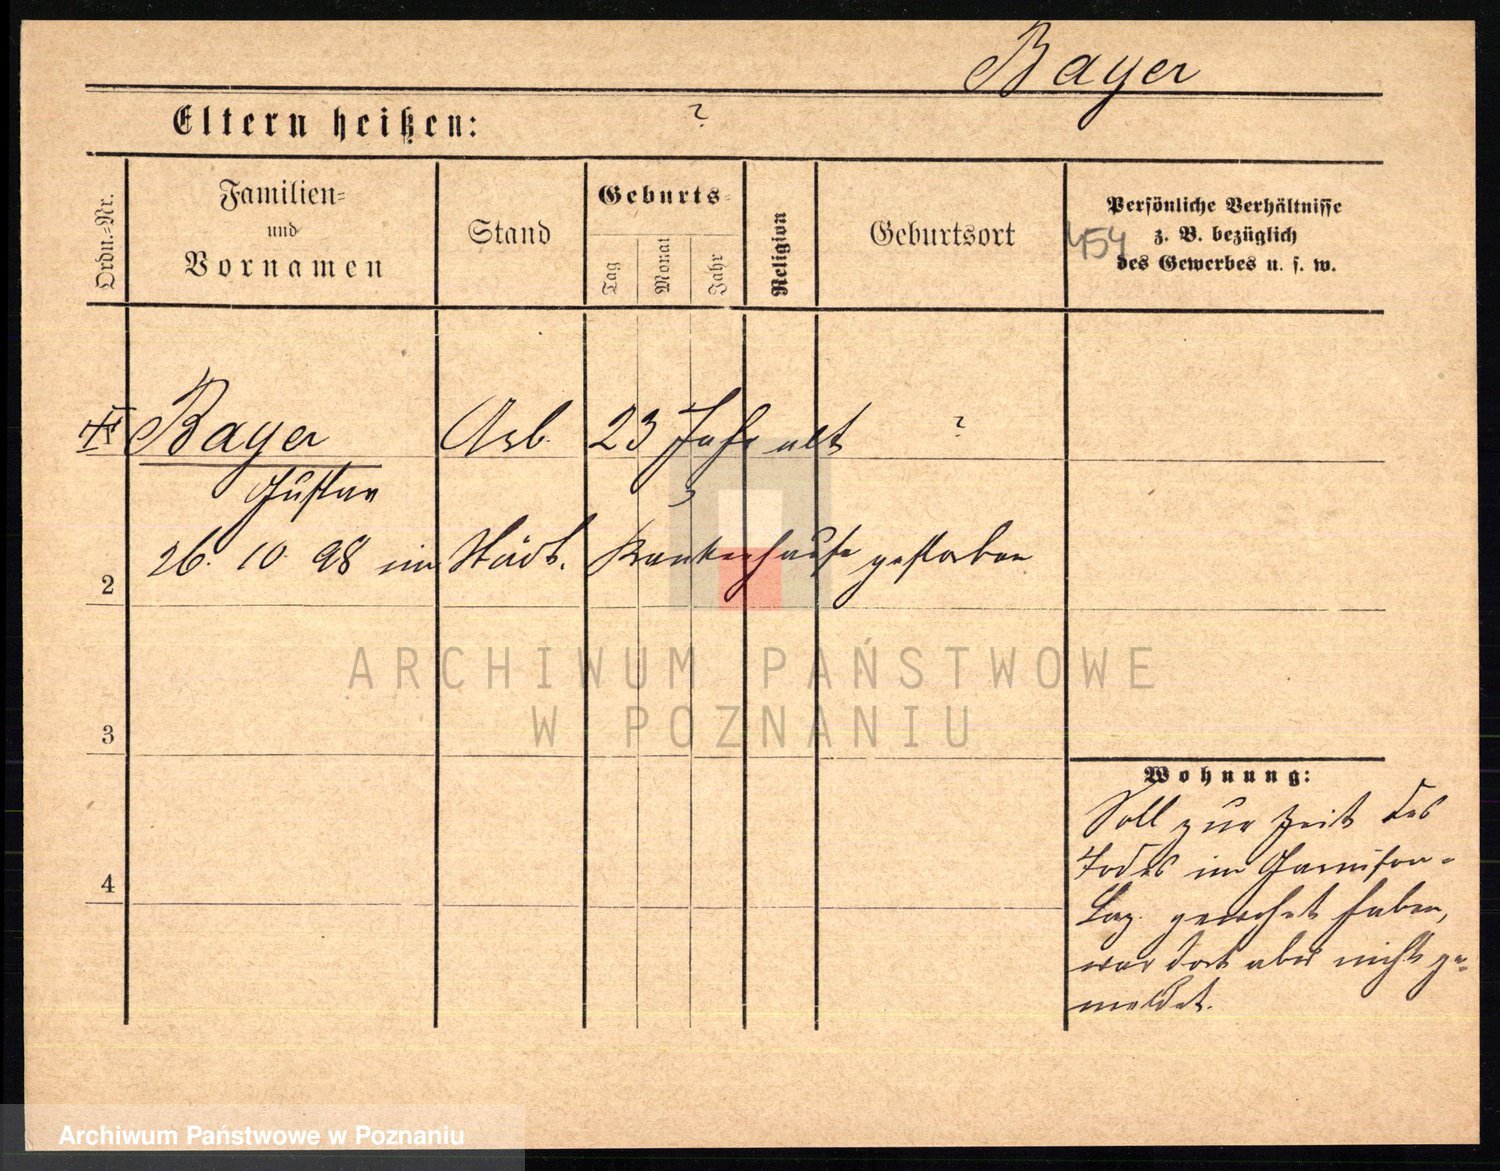 Bayer
Eltern heißen: ?
Ordn.-Nr.
Familien-
und
Vornamen
Stand
Geburts-
Tag
Monat
Jahr
Religion
Geburtsort
Persönliche Verhältnisse
z. B. bezüglich
des Gewerbes u. s. w.
454
Bayer Arb. 23 Jahr alt ?
Gustav
26. 10. 98 im Städt. Krankenhause gestorben
2
3
4
Wohnung:
Soll zur Zeit des
Todes im Garnison-
Laz. gewohnt haben,
war dort aber nicht ge-
meldet.
ARCHIWUM PAŃSTWOWE
W POZNANIU
Archiwum Państwowe w Poznaniu